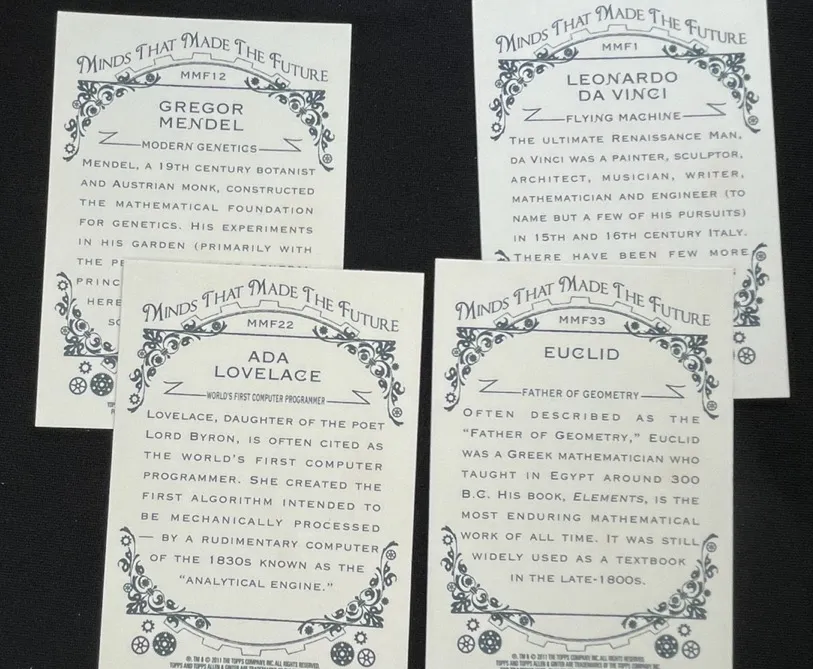 MINDS THAT MADE THE FUTURE
MMF12
GREGOR
MENDEL
MODERN GENETICS
MENDEL, A 19TH CENTURY BOTANIST
AND AUSTRIAN MONK, CONSTRUCTED
THE MATHEMATICAL FOUNDATION
FOR GENETICS. HIS EXPERIMENTS
IN HIS GARDEN (PRIMARILY WITH
THE
MINDS THAT MADE THE FUTURE
MMF1
LEONARDO
DA VINCI
FLYING MACHINE
THE ULTIMATE RENAISSANCE MAN,
DA VINCI WAS A PAINTER, SCULPTOR,
ARCHITECT, MUSICIAN, WRITER,
MATHEMATICIAN AND ENGINEER (TO
NAME BUT A FEW OF HIS PURSUITS)
IN 15TH AND 16TH CENTURY ITALY.
THERE HAVE BEEN FEW MORE
MINDS THAT MADE THE FUTURE
MMF22
ADA
LOVELACE
WORLD'S FIRST COMPUTER PROGRAMMER
LOVELACE, DAUGHTER OF THE POET
LORD BYRON, IS OFTEN CITED AS
THE WORLD'S FIRST COMPUTER
PROGRAMMER. SHE CREATED THE
FIRST ALGORITHM INTENDED TO
BE MECHANICALLY PROCESSED
— BY A RUDIMENTARY COMPUTER
OF THE 1830S KNOWN AS THE
"ANALYTICAL ENGINE."
®, TM & © 2011 THE TOPPS COMPANY, INC. ALL RIGHTS RESERVED.
MINDS THAT MADE THE FUTURE
MMF33
EUCLID
FATHER OF GEOMETRY
OFTEN DESCRIBED AS THE
"FATHER OF GEOMETRY," EUCLID
WAS A GREEK MATHEMATICIAN WHO
TAUGHT IN EGYPT AROUND 300
B.C. HIS BOOK, ELEMENTS, IS THE
MOST ENDURING MATHEMATICAL
WORK OF ALL TIME. IT WAS STILL
WIDELY USED AS A TEXTBOOK
IN THE LATE-1800S.
®, TM & © 2011 THE TOPPS COMPANY, INC. ALL RIGHTS RESERVED.